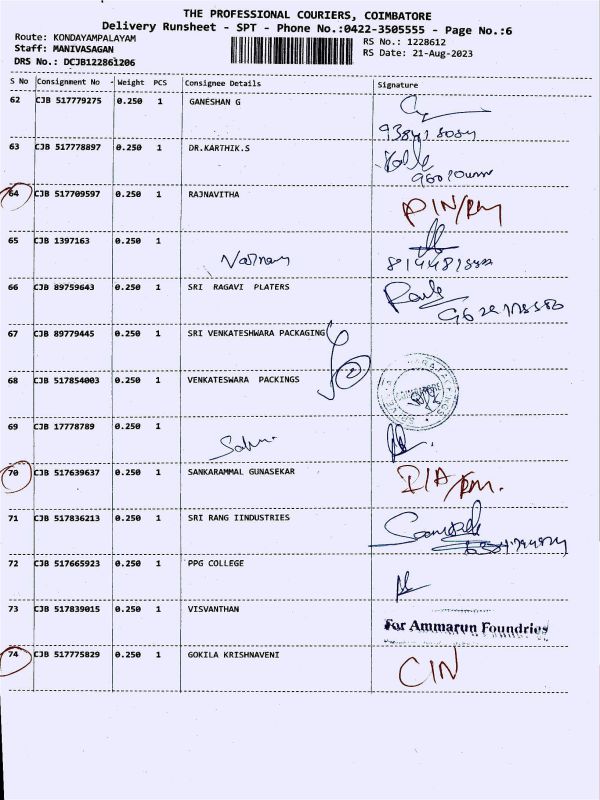 THE PROFESSIONAL COURIERS, COIMBATORE
Delivery Runsheet - SPT - Phone No.:0422-3505555 - Page No.:6
Route: KONDAYAMPALAYAM
Staff: MANIVASAGAN
DRS No.: DCJB122861206
RS No.: 1228612
RS Date: 21-Aug-2023
S No Consignment No Weight PCS Consignee Details Signature
62 CJB 517779275 0.250 1 GANESHAN G
63 CJB 517778897 0.250 1 DR.KARTHIK.S
64 CJB 517709597 0.250 1 RAJNAVITHA
65 CJB 1397163 0.250 1
66 CJB 89759643 0.250 1 SRI RAGAVI PLATERS
67 CJB 89779445 0.250 1 SRI VENKATESHWARA PACKAGING
68 CJB 517854003 0.250 1 VENKATESWARA PACKINGS
69 CJB 17778789 0.250 1
70 CJB 517639637 0.250 1 SANKARAMMAL GUNASEKAR
71 CJB 517836213 0.250 1 SRI RANG IINDUSTRIES
72 CJB 517665923 0.250 1 PPG COLLEGE
73 CJB 517839015 0.250 1 VISVANTHAN For Ammarun Foundries
74 CJB 517775829 0.250 1 GOKILA KRISHNAVENI CIN